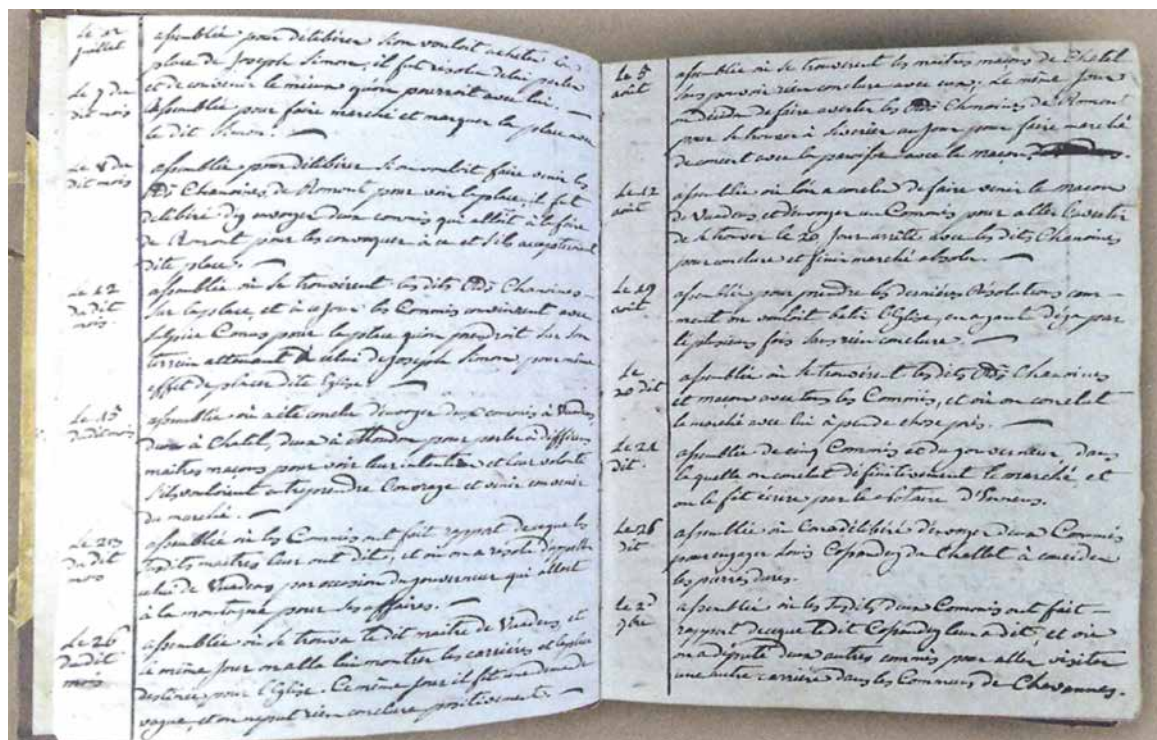 Le 2
juillet
assemblée pour déliberer si on vouloit acheter la
place de Joseph Simon, il fut résolu de lui parler
et de convenir le mieux qu'on pourroit avec lui. —
Le 9 du
dit mois
Assemblée pour faire marché et marquer la place avec
le dit Simon. —
Le 8 du
dit mois
assemblée pour déliberer si on vouloit faire venir les
Chanoines de Romont pour voir la place, il fut
déliberé d'y envoyer deux commis qui allât à la foire
de Romont pour les convoquer à ce et s'ils accepteroient
dite place. —
Le 12
du dit
mois.
assemblée où se trouvèrent les dits Chanoines —
sur la place, et à ce jour les Commis convinrent avec
Comus pour la place qu'on prendroit sur son
terrein attenant à celui de Joseph Simon, pour même
effet de placer dite Eglise. —
Le 15
du dit mois
assemblée où a été conclu d'envoyer deux commis à Vuadens,
deux à Chatel, deux à Moudon pour parler à differens
maitres maçons pour voir leur intention et leur volonté
s'ils vouloient entreprendre l'ouvrage et venir convenir
du marché. —
Le 20
du dit
mois
assemblée où les Commis ont fait rapport de ce que les
susdits maitres leur ont dit, et où on a résolu d'appeller
celui de Vuadens par occasion du gouverneur qui alloit
à la montagne pour ses affaires. —
Le 26
du dit
mois
assemblée où se trouva le dit maitre de Vuadens, et
le même jour on alla lui montrer les carrières et la place
destinée pour l'Eglise. Ce même jour il fit une demande
vague, et on ne put rien conclure positivement. —
Le 5
août
assemblée où se trouverent les maitres maçons de Chatel
sans pouvoir rien conclure avec eux; Le même jour
on décida de faire avertir les Chanoines de Romont
pour se trouver à Siviriez au jour pour faire marché
de concert avec la paroisse avec le maçon
Le 12
août
assemblée où l'on a conclu de faire venir le maçon
de Vuadens, et d'envoyer un Commis pour aller l'avertir
de se trouver le 20 jour arrêté avec les dits Chanoines
pour conclure et finir marché absolu. —
Le 19
août
assemblée pour prendre les dernières résolutions com —
ment on vouloit batir l'Eglise, en ayant déja parlé
plusieurs fois sans rien conclure. —
Le
20 dit
assemblée où se trouvèrent les dits Chanoines
et maçon avec tous les Commis, et où on conclut
le marché avec lui à peu de chose près. —
Le 21
dit.
assemblée de cinq Commis et du gouverneur, dans
laquelle on conclut définitivement le marché, et
on le fit écrire par le Notaire
Le 26
dit
assemblée où l'on a déliberé d'envoyer deux Commis
pour engager Louis Copandey du Challet à
les pierres dures.
Le 2
9bre
assemblée où les susdits deux Commis ont fait —
rapport de ce que le dit Copandey leur a dit, et où
on a député deux autres commis pour aller visiter
une autre carrière dans les Communs de Chavannes.